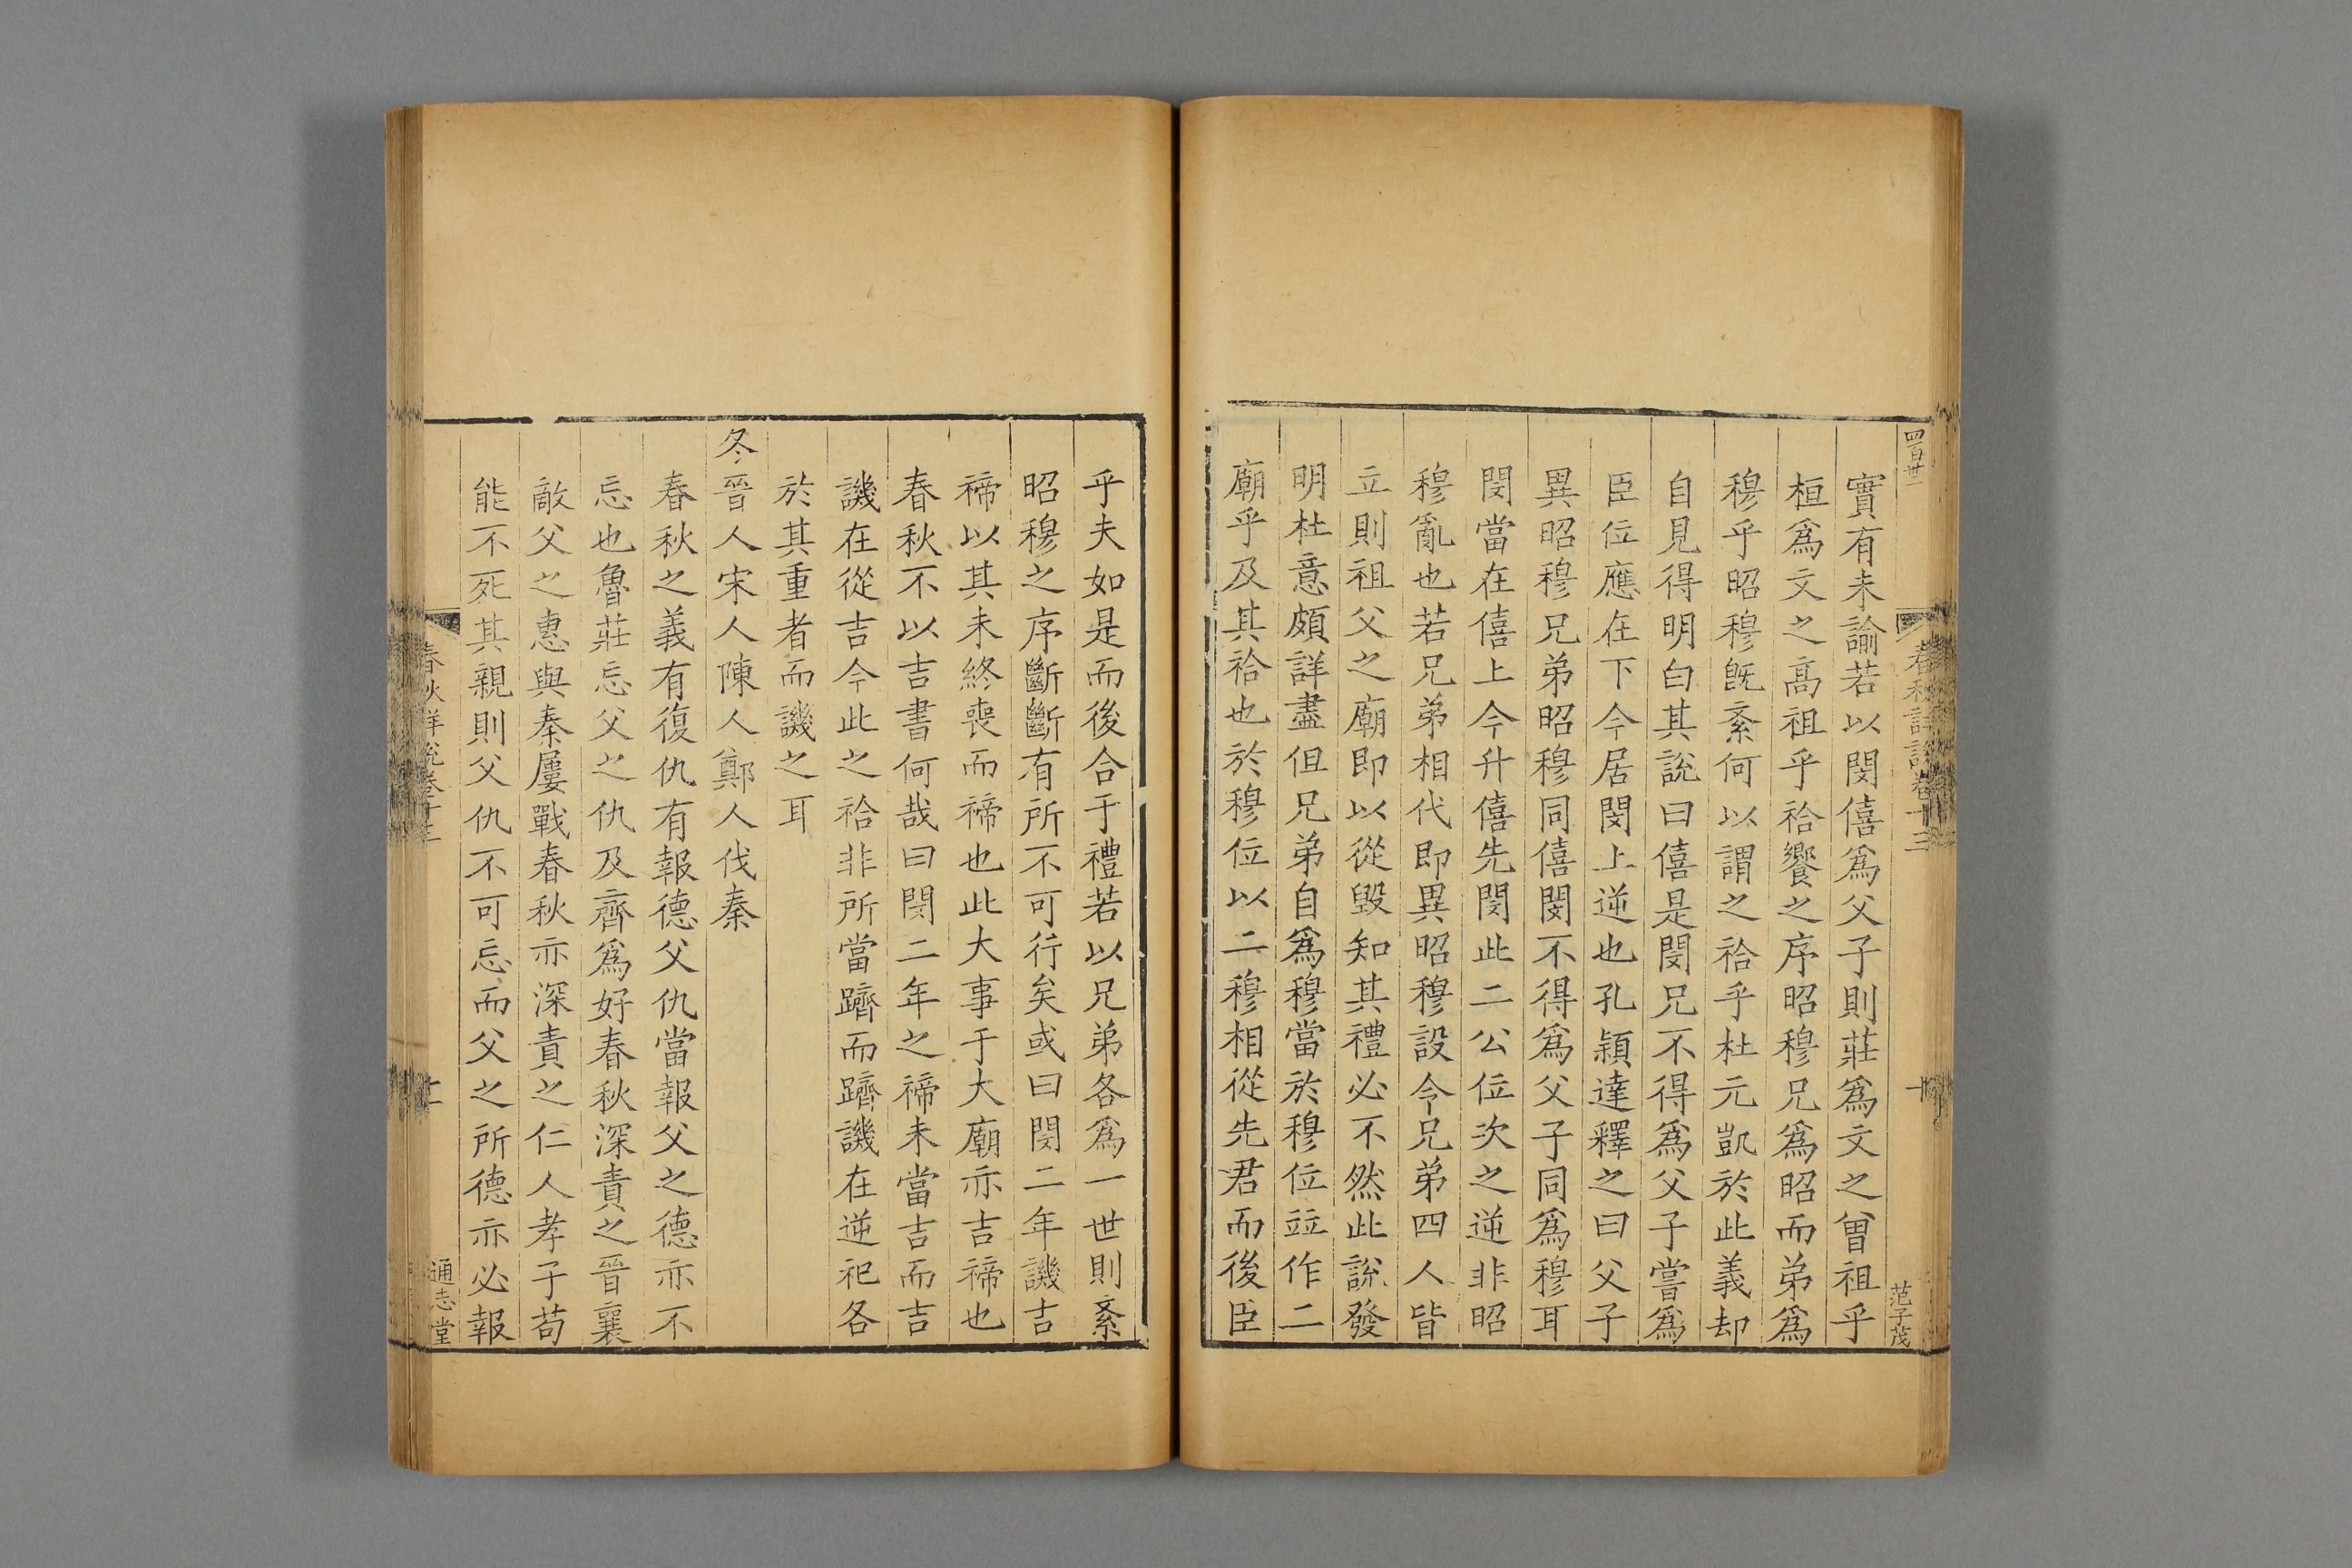 四百卅二
春秋詳說卷十三
十
范子茂
實有未諭若以閔僖爲父子則莊爲文之曾祖乎
桓爲文之高祖乎祫饗之序昭穆兄爲昭而弟爲
穆乎昭穆旣紊何以謂之祫乎杜元凱於此義却
自見得明白其說曰僖是閔兄不得爲父子嘗爲
臣位應在下今居閔上逆也孔穎達釋之曰父子
異昭穆兄弟昭穆同僖閔不得爲父子同爲穆耳
閔當在僖上今升僖先閔此二公位次之逆非昭
穆亂也若兄弟相代即異昭穆設令兄弟四人皆
立則祖父之廟即以從毀知其禮必不然此說發
明杜意頗詳盡但兄弟自爲穆當於穆位竝作二
廟乎及其祫也於穆位以二穆相從先君而後臣
乎夫如是而後合于禮若以兄弟各爲一世則紊
昭穆之序斷斷有所不可行矣或曰閔二年譏吉
禘以其未終喪而禘也此大事于大廟亦吉禘也
春秋不以吉書何哉曰閔二年之禘未當吉而吉
譏在從吉今此之祫非所當躋而躋譏在逆祀各
於其重者而譏之耳
冬晉人宋人陳人鄭人伐秦
春秋之義有復仇有報德父仇當報父之德亦不
忘也魯莊忘父之仇及齊爲好春秋深責之晉襄
敵父之惠與秦屢戰春秋亦深責之仁人孝子苟
能不死其親則父仇不可忘而父之所德亦必報
春秋詳說卷十三
通志堂